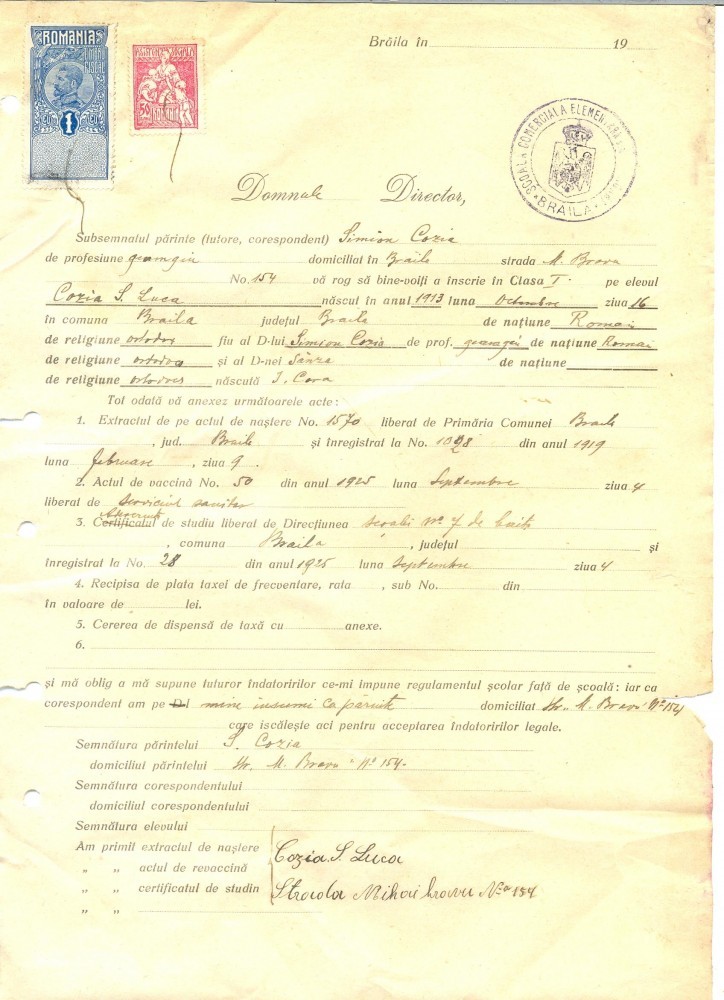 ROMANIA
TIMBRU FISCAL
1
ASISTENȚA SOCIALA
50
ROMANIA
Brăila în 19
ȘCOALA COMERCIALA ELEMENTARA
BRĂILA
Domnule Director,
Subsemnatul părinte (tutore, corespondent) Simion Cozia
de profesiune geamgiu domiciliat în Brăila strada M. Bravu
No. 154 vă rog să bine-voiți a înscrie în Clasa I pe elevul
Cozia S. Luca născut în anul 1913 luna Octombre ziua 16
în comuna Braila județul Braila de națiune Roman
de religiune ortodox fiu al D-lui Simion Cozia de prof. geamgiu de națiune Roman
de religiune ortodox și al D-nei Sânza de națiune
de religiune ortodox născută I.
Tot odată vă anexez următoarele acte:
1. Extractul de pe actul de naștere No. 1570 liberat de Primăria Comunei Braila
, jud. Braila și înregistrat la No. 1028 din anul 1919
luna februarie , ziua 9 .
2. Actul de vaccină No. 50 din anul 1925 luna Septembre ziua 4
liberat de serviciul sanitar
3. Certificatul de studiu liberat de Direcțiunea școalii No. 7 de baiti
, comuna Braila , județul și
înregistrat la No. 28 din anul 1925 luna Septembre ziua 4
4. Recipisa de plata taxei de frecventare, rata , sub No. din
în valoare de lei.
5. Cererea de dispensă de taxă cu anexe.
6.
și mă oblig a mă supune tuturor îndatoririlor ce-mi impune regulamentul școlar față de școală: iar ca
corespondent am pe D-l mine insumi ca părinte domiciliat Str. „M. Bravu" No 154
care iscălește aci pentru acceptarea îndatoririlor legale.
Semnătura părintelui S. Cozia
domiciliul părintelui Str. M. Bravu No 154-
Semnătura corespondentului
domiciliul corespondentului
Semnătura elevului
Am primit extractul de naștere Cozia S. Luca
„ „ actul de revaccină
„ „ certificatul de studin Strada Mihai bravu No 154
„ „